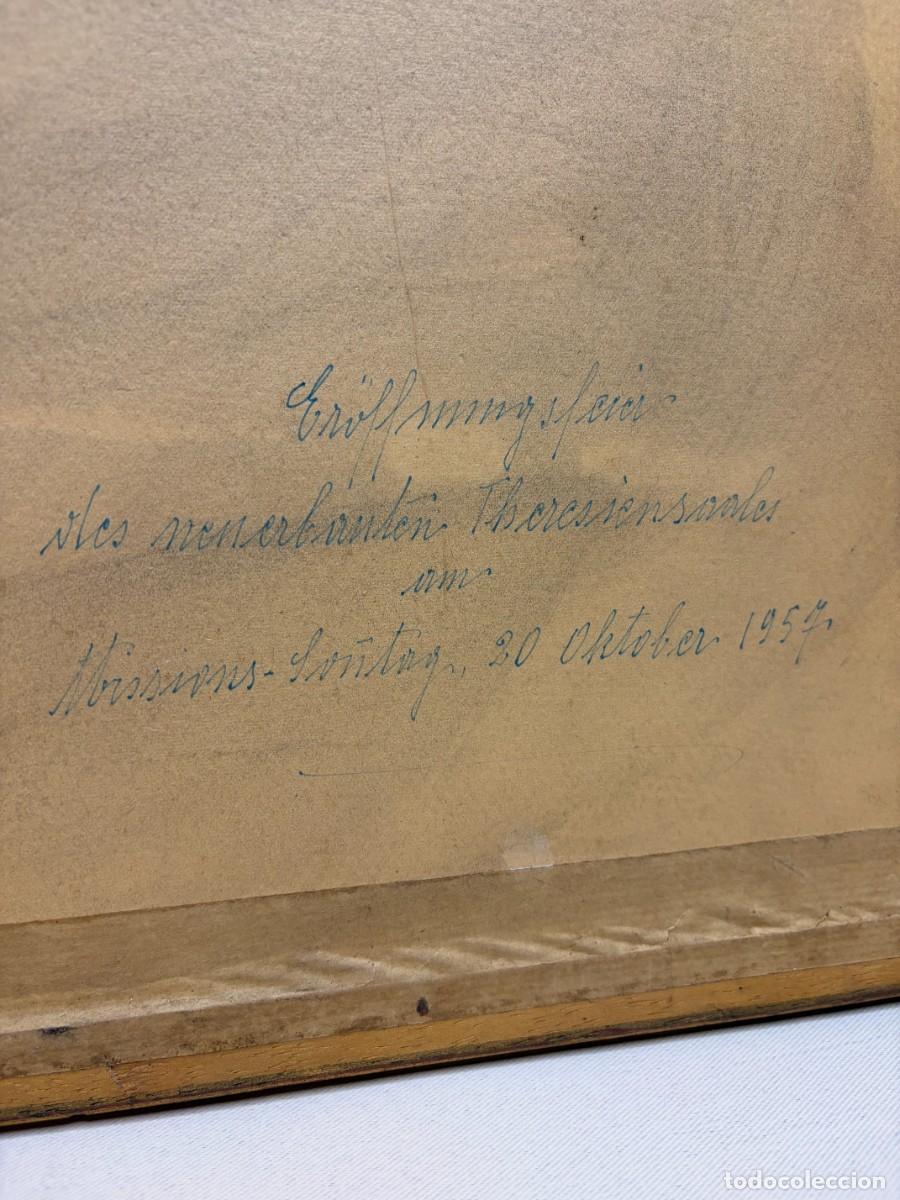 Eröffnungsfeier
des neuerbauten Theresiensaales
am
Missions-Son̄tag, 20 Oktober 1957.
todocoleccion